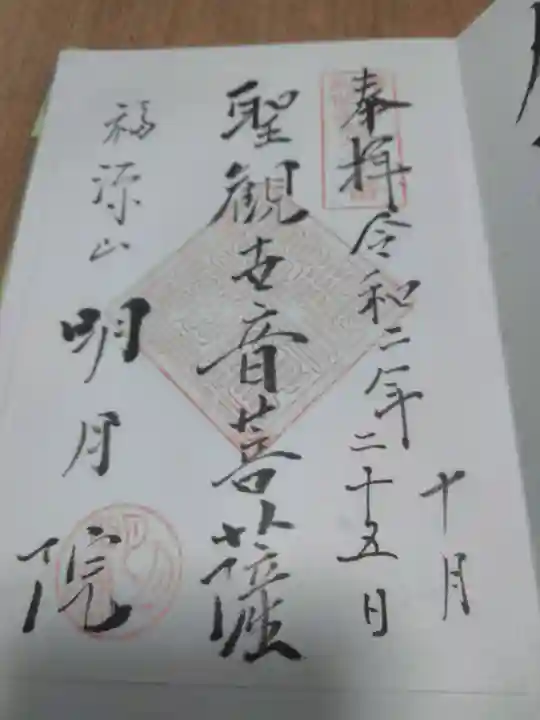 奉拝 令和二年 十月
二十五日
聖観世音菩薩
福源山 明月院